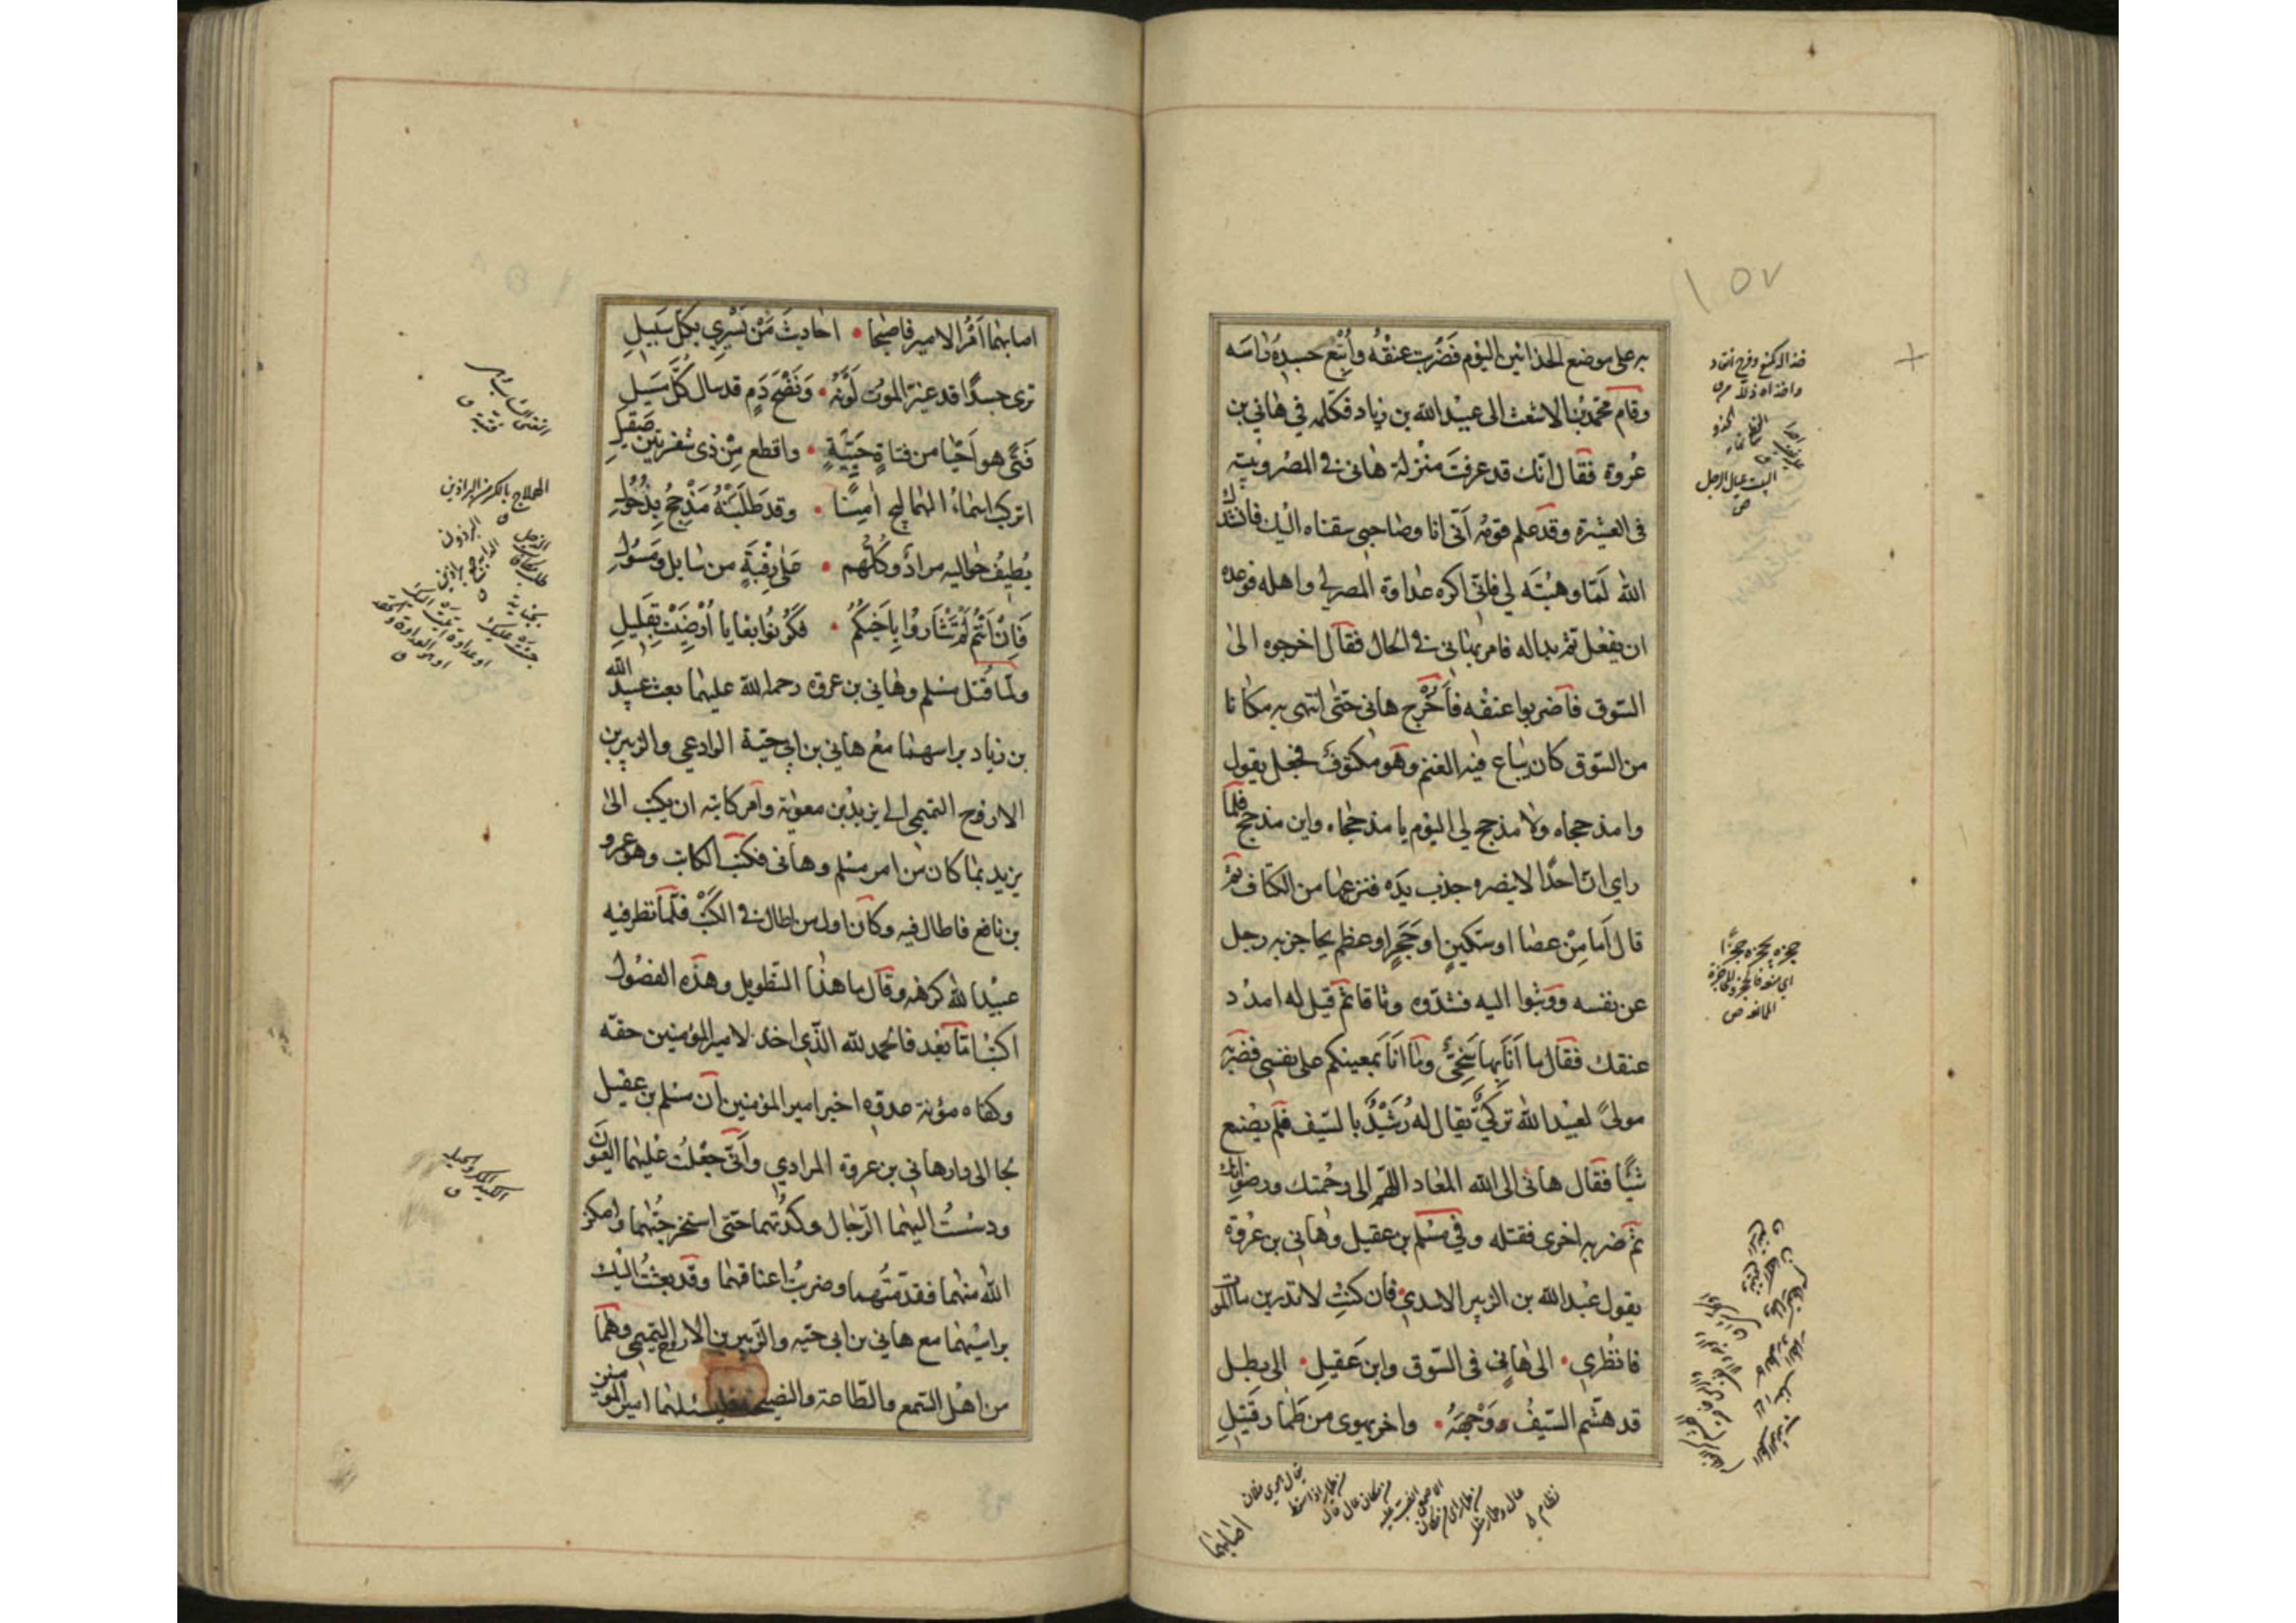 ١٥٧
به على موضع الحذائين اليوم فضربت عنقه وأتبع جسده راسه
وقام محمد بن الاشعث الى عبيد الله بن زياد فكلمه في هاني بن
عروة فقال انك قد عرفت منزلة هاني في المصر وبيته
في العشيرة وقد علم قومه أني انا وصاحبي سقناه اليك فانشدك
الله لما وهبته لي فاني اكره عداوة المصر لي واهله فوعده
ان يفعل ثم بدا له فامر بهاني في الحال فقال اخرجوه الى
السوق فاضربوا عنقه فأخرج هاني حتى انتهى به مكانا
من السوق كان يباع فيه الغنم وهو مكتوف فجعل يقول
وا مذحجاه ولا مذحج لي اليوم يا مذحجاه واين مذحج فلما
راى ان احدا لا ينصره جذب يده فنزعها من الكتاف ثم
قال أما من عصا او سكين او حجر او عظم يحاجز به رجل
عن نفسه ووثبوا اليه فشدوه وثاقا ثم قيل له امدد
عنقك فقال ما أنا بها بسخي وما انا بمعينكم على نفسي فضربه
مولى لعبيد الله تركي يقال له رشيد بالسيف فلم يصنع
شيئا فقال هاني الى الله المعاد اللهم الى رحمتك ورضوانك
ثم ضربه اخرى فقتله وفي مسلم بن عقيل وهاني بن عروة
يقول عبد الله بن الزبير الاسدي فان كنت لا تدرين ما الموت
فانظري الى هاني في السوق وابن عقيل الى بطل
قد هشم السيف وجهه واخر يهوى من طمار قتيل
حجزه يحجزه حجزا
اي منعه فانحجز والمحاجزة
الممانعة ص
اصابهما
اصابهما أمر الامير فاصبحا احاديث من يسري بكل سبيل
ترى جسدا قد غير الموت لونه ونضح دم قد سال كل مسيل
فتى هو أحيا من فتاة حيية واقطع من ذي شفرتين صقيل
اتركب اسماء الهماليج امنا وقد طلبته مذحج بذحول
يطيف حواليه مراد وكلهم على رقبة من سايل ومسول
فان انتم لم تثاروا باخيكم فكونوا بغايا أرضيت بقليل
ولما قتل مسلم وهاني بن عروة رحمة الله عليهما بعث عبيد الله
بن زياد براسهما مع هاني بن ابي حية الوادعي والزبير بن
الاروح التميمي الى يزيد بن معوية وأمر كاتبه ان يكتب الى
يزيد بما كان من امر مسلم وهاني فكتب الكاتب وهو عمرو
بن نافع فاطال فيه وكان اول من اطال في الكتب فلما نظر فيه
عبيد الله كرهه وقال ما هذا التطويل وهذه الفضول
اكتب اما بعد فالحمد لله الذي اخذ لامير المؤمنين حقه
وكفاه مؤنة عدوه اخبر امير المؤمنين ان مسلم بن عقيل
لجا الى دار هاني بن عروة المرادي وأني جعلت عليهما العيون
ودسست اليهما الرجال وكدتهما حتى استخرجتهما وامكن
الله منهما فقدمتهما وضربت اعناقهما وقد بعثت اليك
براسيهما مع هاني بن ابي حية والزبير بن الاروح التميمي وهما
من اهل السمع والطاعة والنصيحة فليسئلهما امير المؤمنين